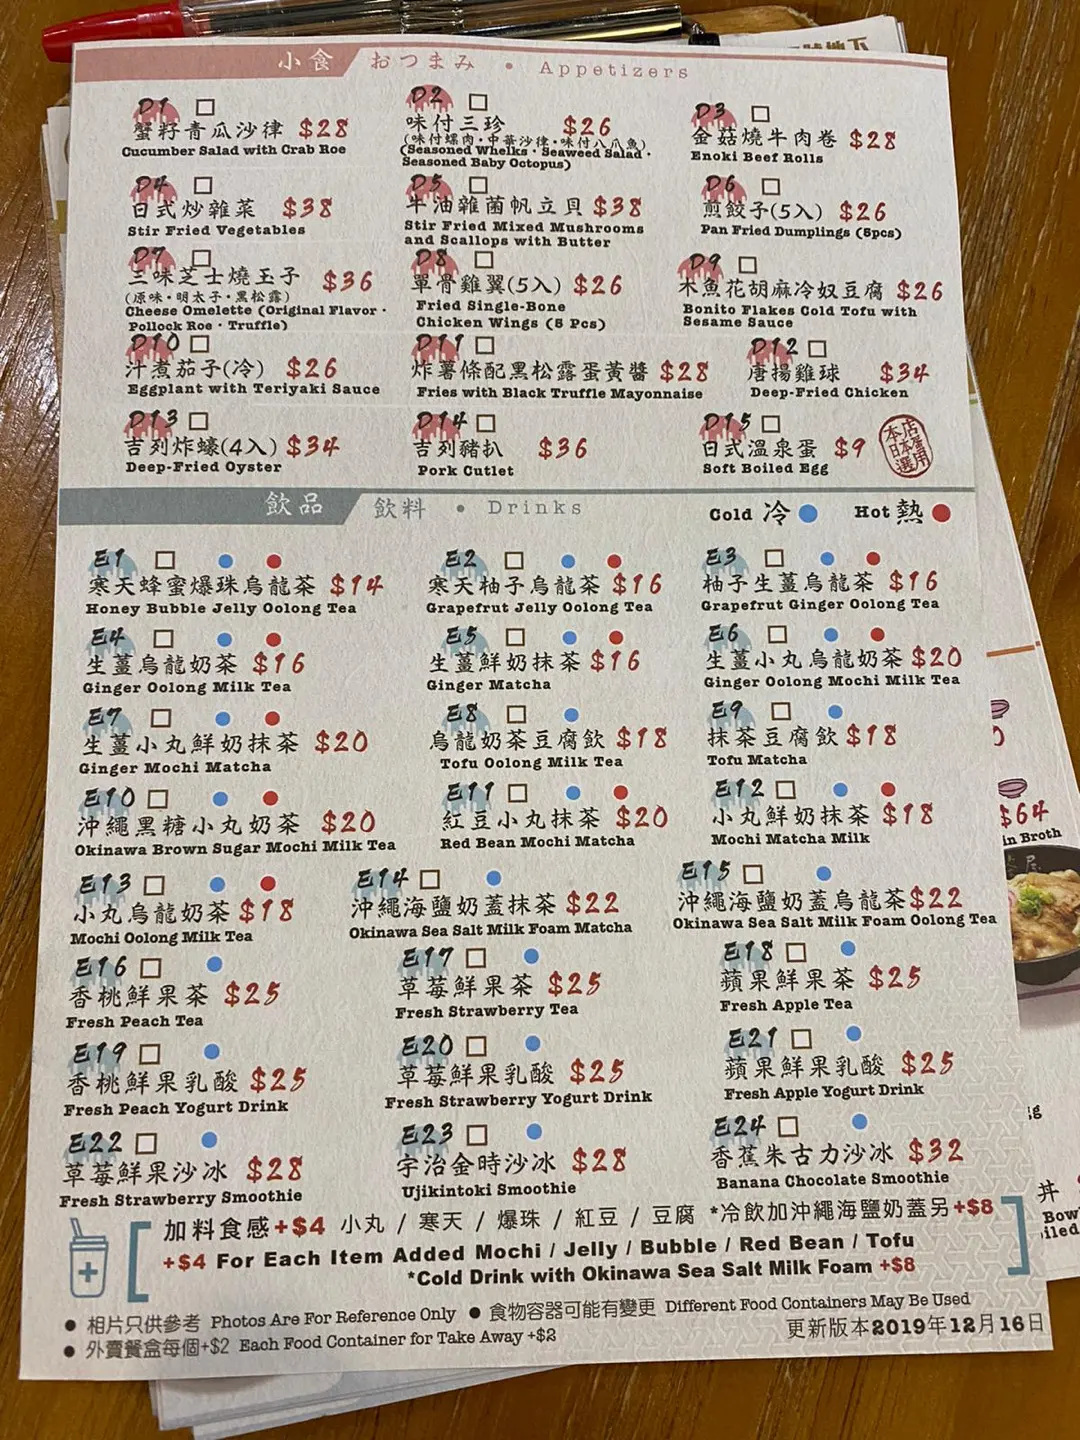 小食 おつまみ • Appetizers
D1 D2 D3
蟹籽青瓜沙律 $28
Cucumber Salad with Crab Roe
味付三珍 $26
(味付螺肉・中華沙律・味付八爪魚)
(Seasoned Whelks・Seaweed Salad・
Seasoned Baby Octopus)
金菇燒牛肉卷 $28
Enoki Beef Rolls
D4 D5 D6
日式炒雜菜 $38
Stir Fried Vegetables
牛油雜菌帆立貝 $38
Stir Fried Mixed Mushrooms
and Scallops with Butter
煎餃子(5入) $26
Pan Fried Dumplings (5pcs)
D7 D8 D9
三味芝士燒玉子 $36
(原味・明太子・黑松露)
Cheese Omelette (Original Flavor・
Pollock Roe・Truffle)
單骨雞翼(5入) $26
Fried Single-Bone
Chicken Wings (5 Pcs)
木魚花胡麻冷奴豆腐 $26
Bonito Flakes Cold Tofu with
Sesame Sauce
D10 D11 D12
汁煮茄子(冷) $26
Eggplant with Teriyaki Sauce
炸薯條配黑松露蛋黃醬 $28
Fries with Black Truffle Mayonnaise
唐揚雞球 $34
Deep-Fried Chicken
D13 D14 D15
吉列炸蠔(4入) $34
Deep-Fried Oyster
吉列豬扒 $36
Pork Cutlet
日式溫泉蛋 $9
Soft Boiled Egg
本店選用日本蛋
飲品 飲料 • Drinks
Cold 冷 Hot 熱
E1 E2 E3
寒天蜂蜜爆珠烏龍茶 $14
Honey Bubble Jelly Oolong Tea
寒天柚子烏龍茶 $16
Grapefrut Jelly Oolong Tea
柚子生薑烏龍茶 $16
Grapefrut Ginger Oolong Tea
E4 E5 E6
生薑烏龍奶茶 $16
Ginger Oolong Milk Tea
生薑鮮奶抹茶 $16
Ginger Matcha
生薑小丸烏龍奶茶 $20
Ginger Oolong Mochi Milk Tea
E7 E8 E9
生薑小丸鮮奶抹茶 $20
Ginger Mochi Matcha
烏龍奶茶豆腐飲 $18
Tofu Oolong Milk Tea
抹茶豆腐飲 $18
Tofu Matcha
E10 E11 E12
沖繩黑糖小丸奶茶 $20
Okinawa Brown Sugar Mochi Milk Tea
紅豆小丸抹茶 $20
Red Bean Mochi Matcha
小丸鮮奶抹茶 $18
Mochi Matcha Milk
E13 E14 E15
小丸烏龍奶茶 $18
Mochi Oolong Milk Tea
沖繩海鹽奶蓋抹茶 $22
Okinawa Sea Salt Milk Foam Matcha
沖繩海鹽奶蓋烏龍茶 $22
Okinawa Sea Salt Milk Foam Oolong Tea
E16 E17 E18
香桃鮮果茶 $25
Fresh Peach Tea
草莓鮮果茶 $25
Fresh Strawberry Tea
蘋果鮮果茶 $25
Fresh Apple Tea
E19 E20 E21
香桃鮮果乳酸 $25
Fresh Peach Yogurt Drink
草莓鮮果乳酸 $25
Fresh Strawberry Yogurt Drink
蘋果鮮果乳酸 $25
Fresh Apple Yogurt Drink
E22 E23 E24
草莓鮮果沙冰 $28
Fresh Strawberry Smoothie
宇治金時沙冰 $28
Ujikintoki Smoothie
香蕉朱古力沙冰 $32
Banana Chocolate Smoothie
加料食感+$4 小丸 / 寒天 / 爆珠 / 紅豆 / 豆腐 *冷飲加沖繩海鹽奶蓋另+$8
+$4 For Each Item Added Mochi / Jelly / Bubble / Red Bean / Tofu
*Cold Drink with Okinawa Sea Salt Milk Foam +$8
● 相片只供參考 Photos Are For Reference Only ● 食物容器可能有變更 Different Food Containers May Be Used
● 外賣餐盒每個+$2 Each Food Container for Take Away +$2
更新版本2019年12月16日
$64
in Broth
丼
Bow
iled